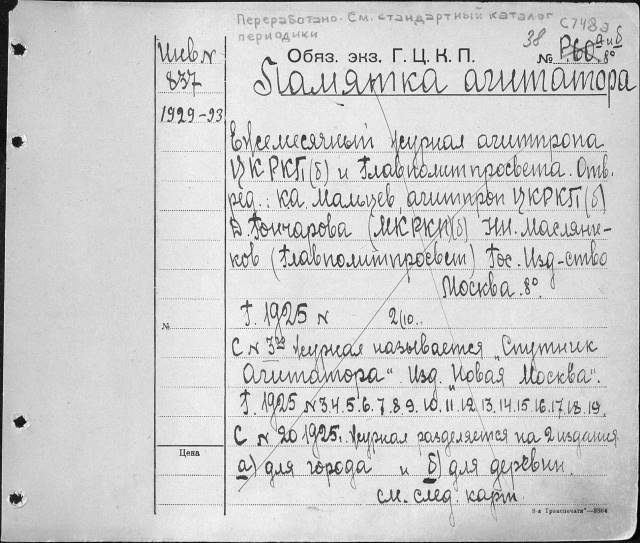 Переработано. См. стандартный каталог
периодики
С748а
38
а и б
Обяз. экз. Г. Ц. К. П. № Р.60 8°
Инв №
837
1929-93
Памятка агитатора
Ежемесячный журнал агитпропа
ЦК РКП(б) и Главполитпросвета. Отв.
ред.: К.А. Мальцев, агитпроп ЦК РКП(б)
Д. Гончарова (МК РКП)(б) Н.Н. Масляни-
ков (Главполитпросвет) Гос. Изд-ство
Москва. 8°.
Г. 1925 № 2(10..
№
С № 3го журнал называется „Спутник
Агитатора“. Изд. „Новая Москва“.
Г. 1925 № 3.4.5.6.7.8.9.10.11.12.13.14.15.16.17.18.19.
С № 20 1925. журнал разделяется на 2 издания
Цена
а) для города и б) для деревни.
см. след. карт.
8-я Транспечати"—3364